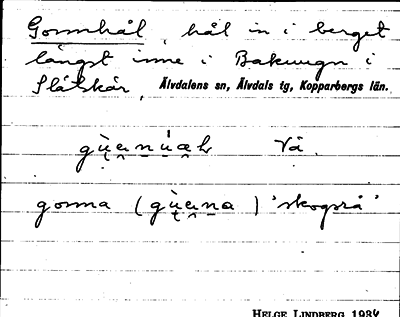 Gonnhål, hål in i berget
längst inne i Bakuugn i
Slätskär, Älvdalens sn, Älvdals tg, Kopparbergs län.
Vå.
gonna ( ) "skogsrå"
HELGE LINDBERG 1984